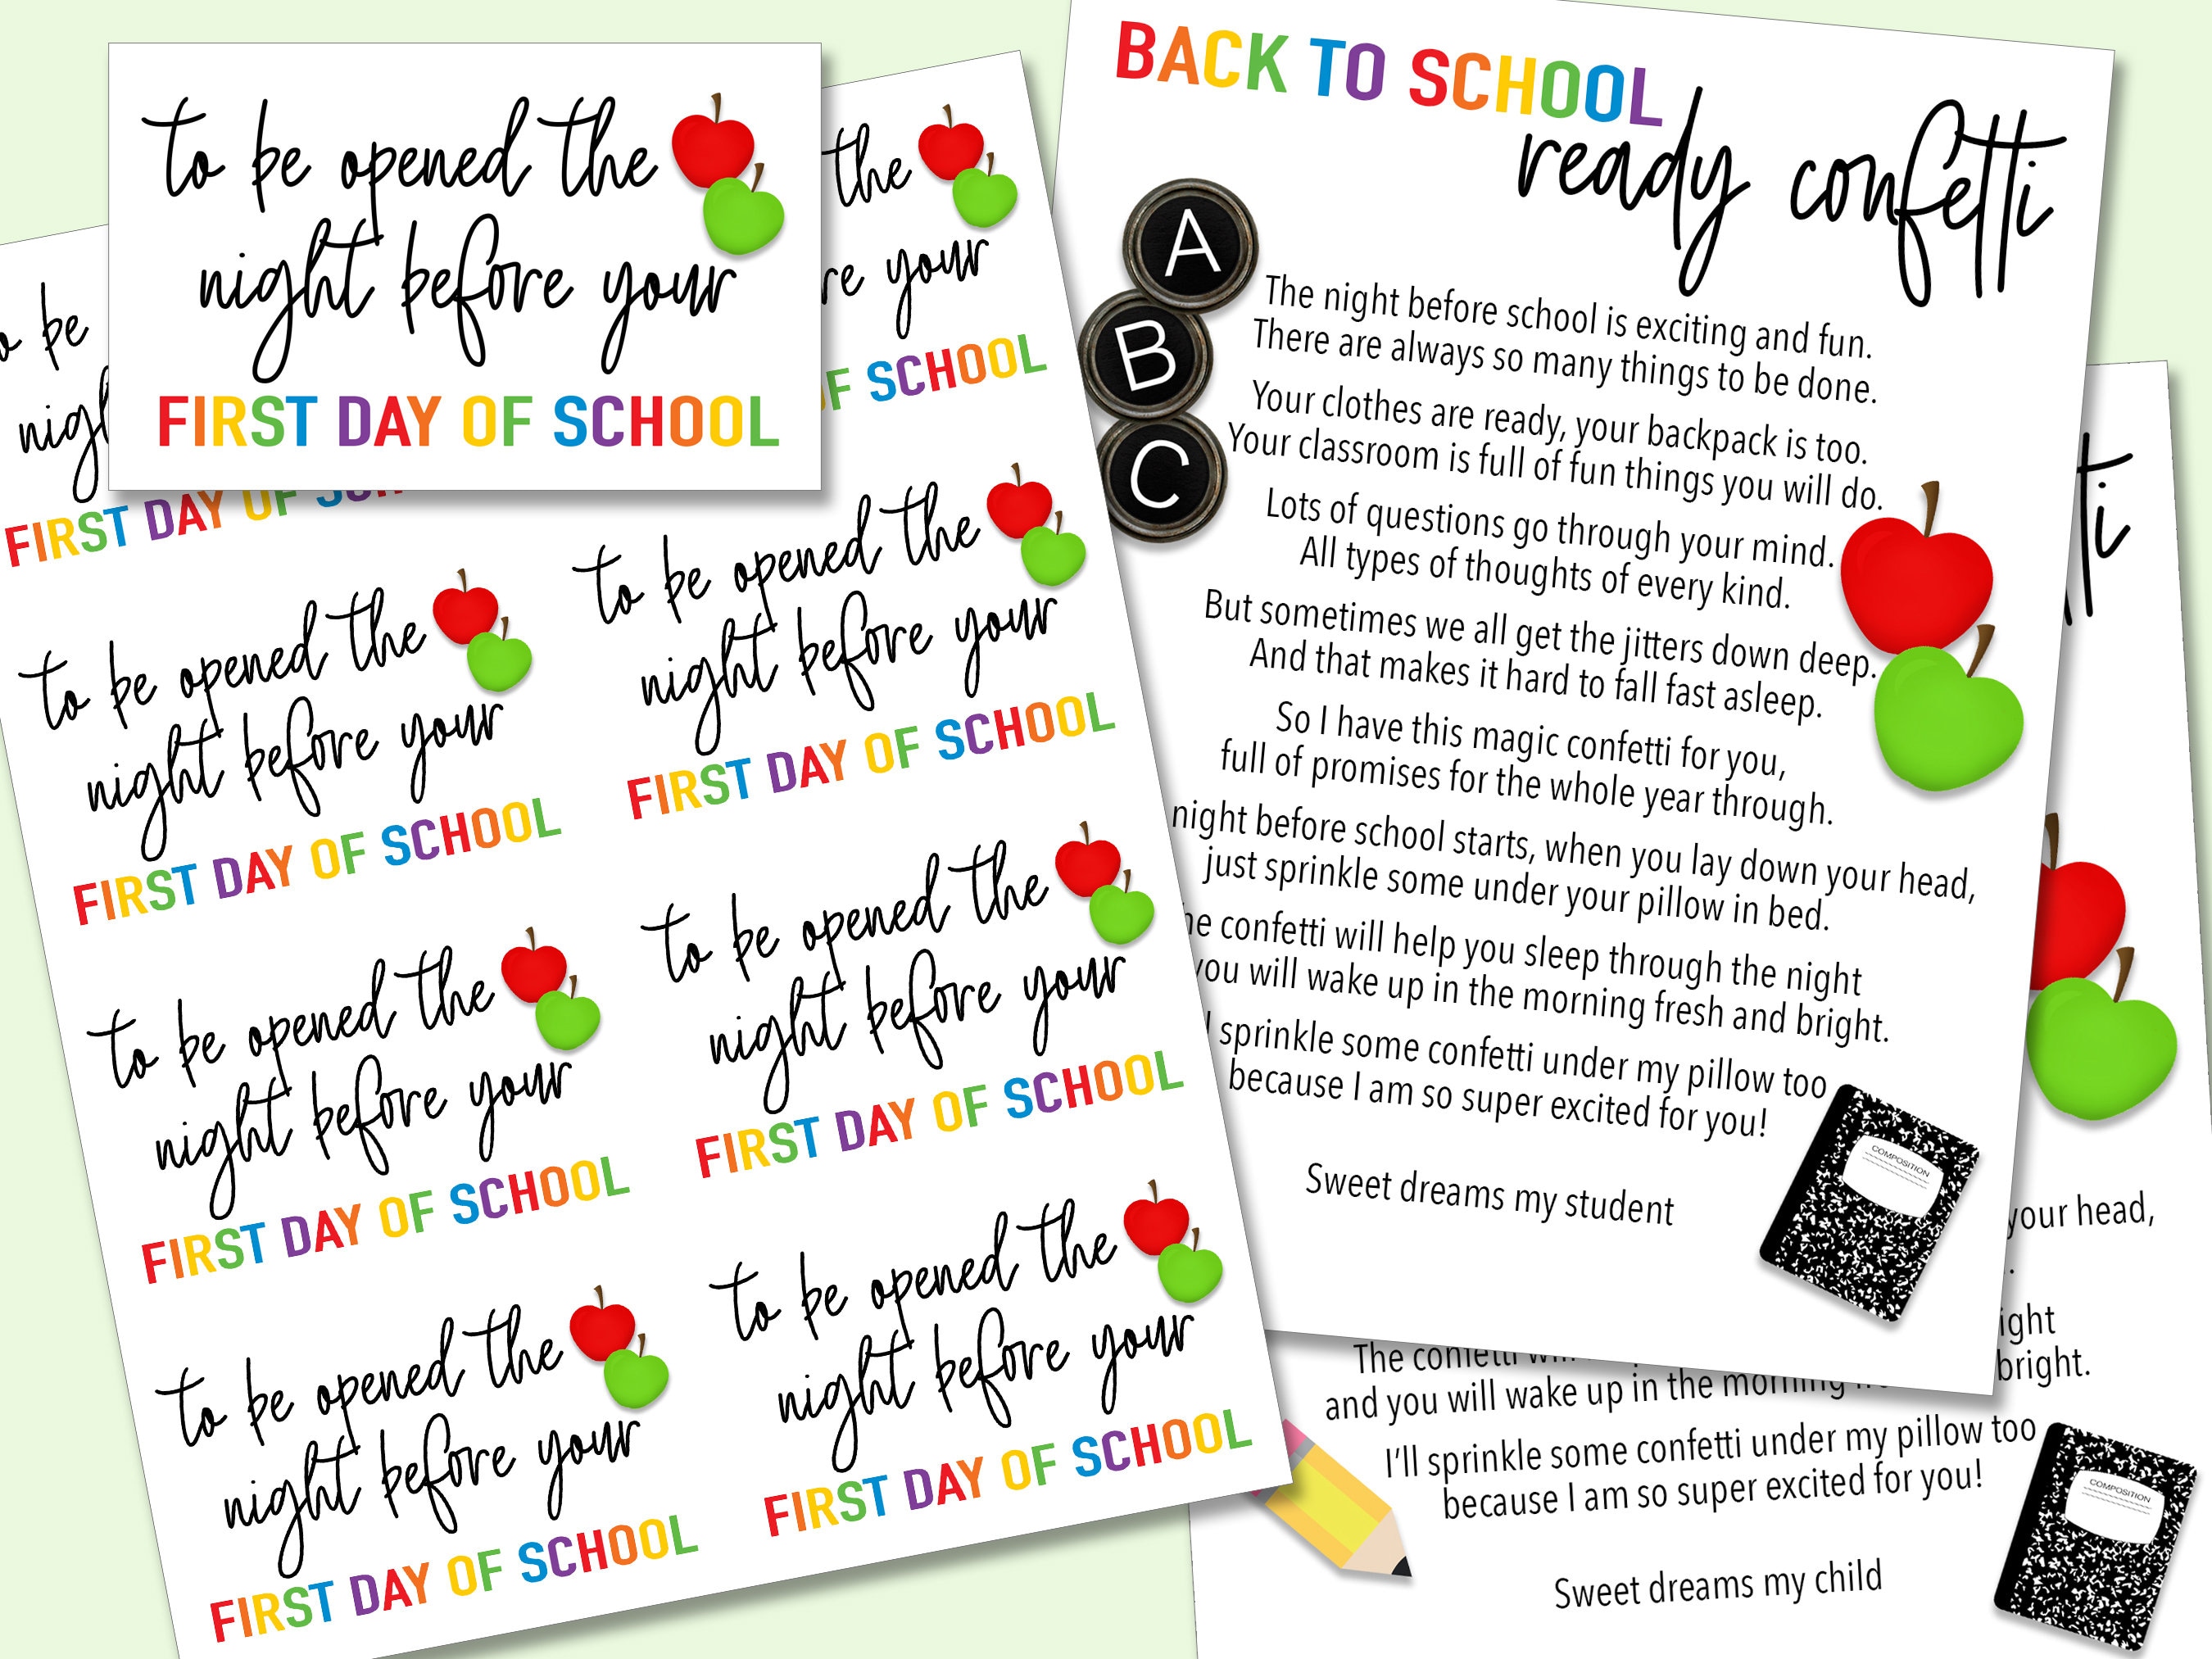 to be opened the
night before your
FIRST DAY OF SCHOOL
the
re your
OF SCHOOL
to be
nigh
FIRST DAY OF SCH
to be opened the
night before your
FIRST DAY OF SCHOOL
to be opened the
night before your
FIRST DAY OF SCHOOL
to be opened the
night before your
FIRST DAY OF SCHOOL
to be opened the
night before your
FIRST DAY OF SCHOOL
to be opened the
night before your
FIRST DAY OF SCHOOL
to be opened the
night before your
FIRST DAY OF SCHOOL
BACK TO SCHOOL
ready confetti
A
B
C
The night before school is exciting and fun.
There are always so many things to be done.
Your clothes are ready, your backpack is too.
Your classroom is full of fun things you will do.
Lots of questions go through your mind.
All types of thoughts of every kind.
But sometimes we all get the jitters down deep.
And that makes it hard to fall fast asleep.
So I have this magic confetti for you,
full of promises for the whole year through.
night before school starts, when you lay down your head,
just sprinkle some under your pillow in bed.
he confetti will help you sleep through the night
you will wake up in the morning fresh and bright.
sprinkle some confetti under my pillow too
because I am so super excited for you!
Sweet dreams my student
COMPOSITION
tti
your head,
ight
The confetti
bright.
and you will wake up in the morning
I'll sprinkle some confetti under my pillow too
because I am so super excited for you!
Sweet dreams my child
COMPOSITION